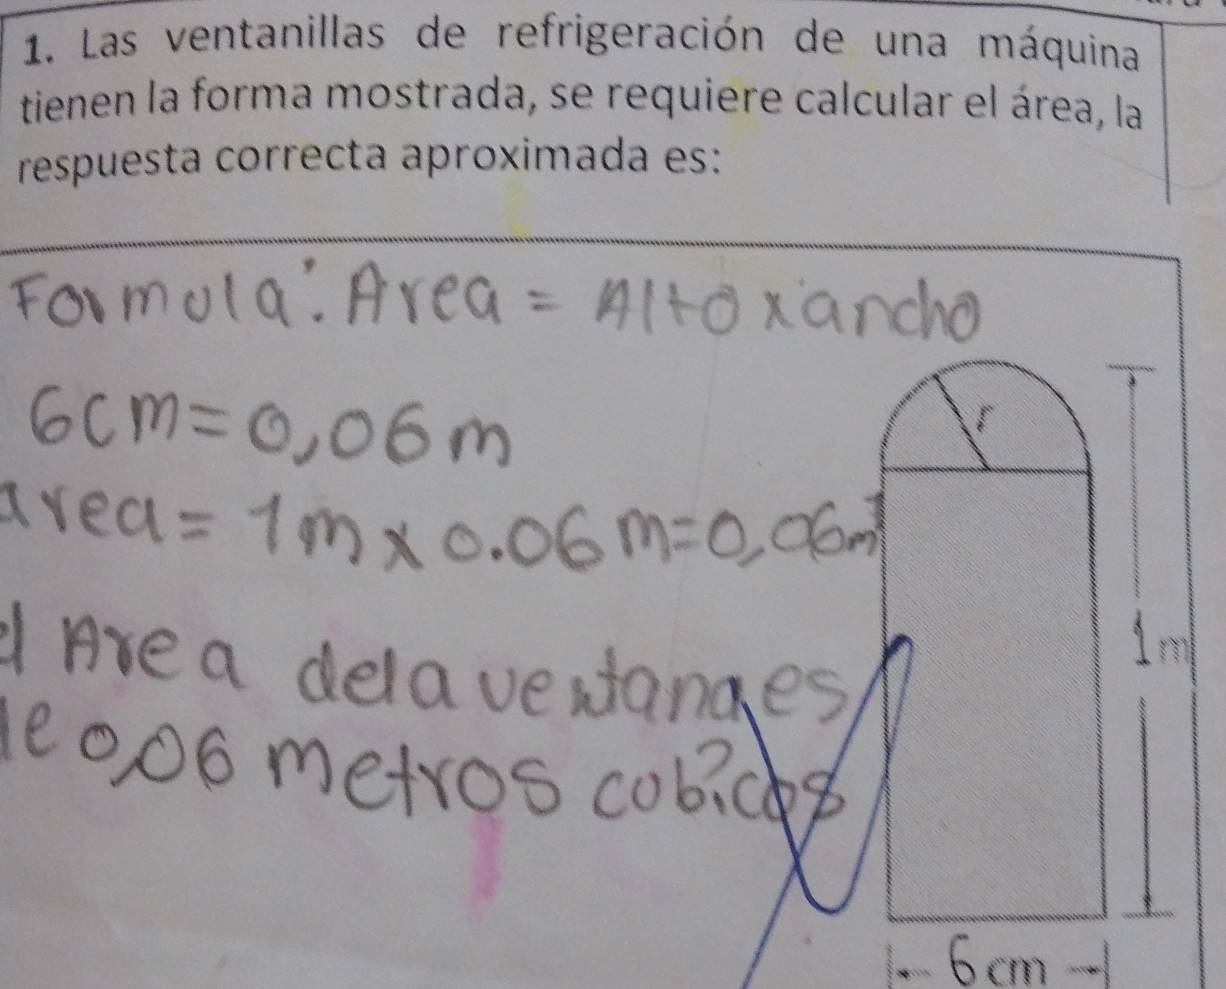 1. Las ventanillas de refrigeración de una máquina
tienen la forma mostrada, se requiere calcular el área, la
respuesta correcta aproximada es:
Formula: Area = Alto x ancho
6cm = 0,06 m
r
area = 1m x 0.06 m = 0,06m³
el Area dela ventana es
de 0,06 metros cobicos
1m
6 cm